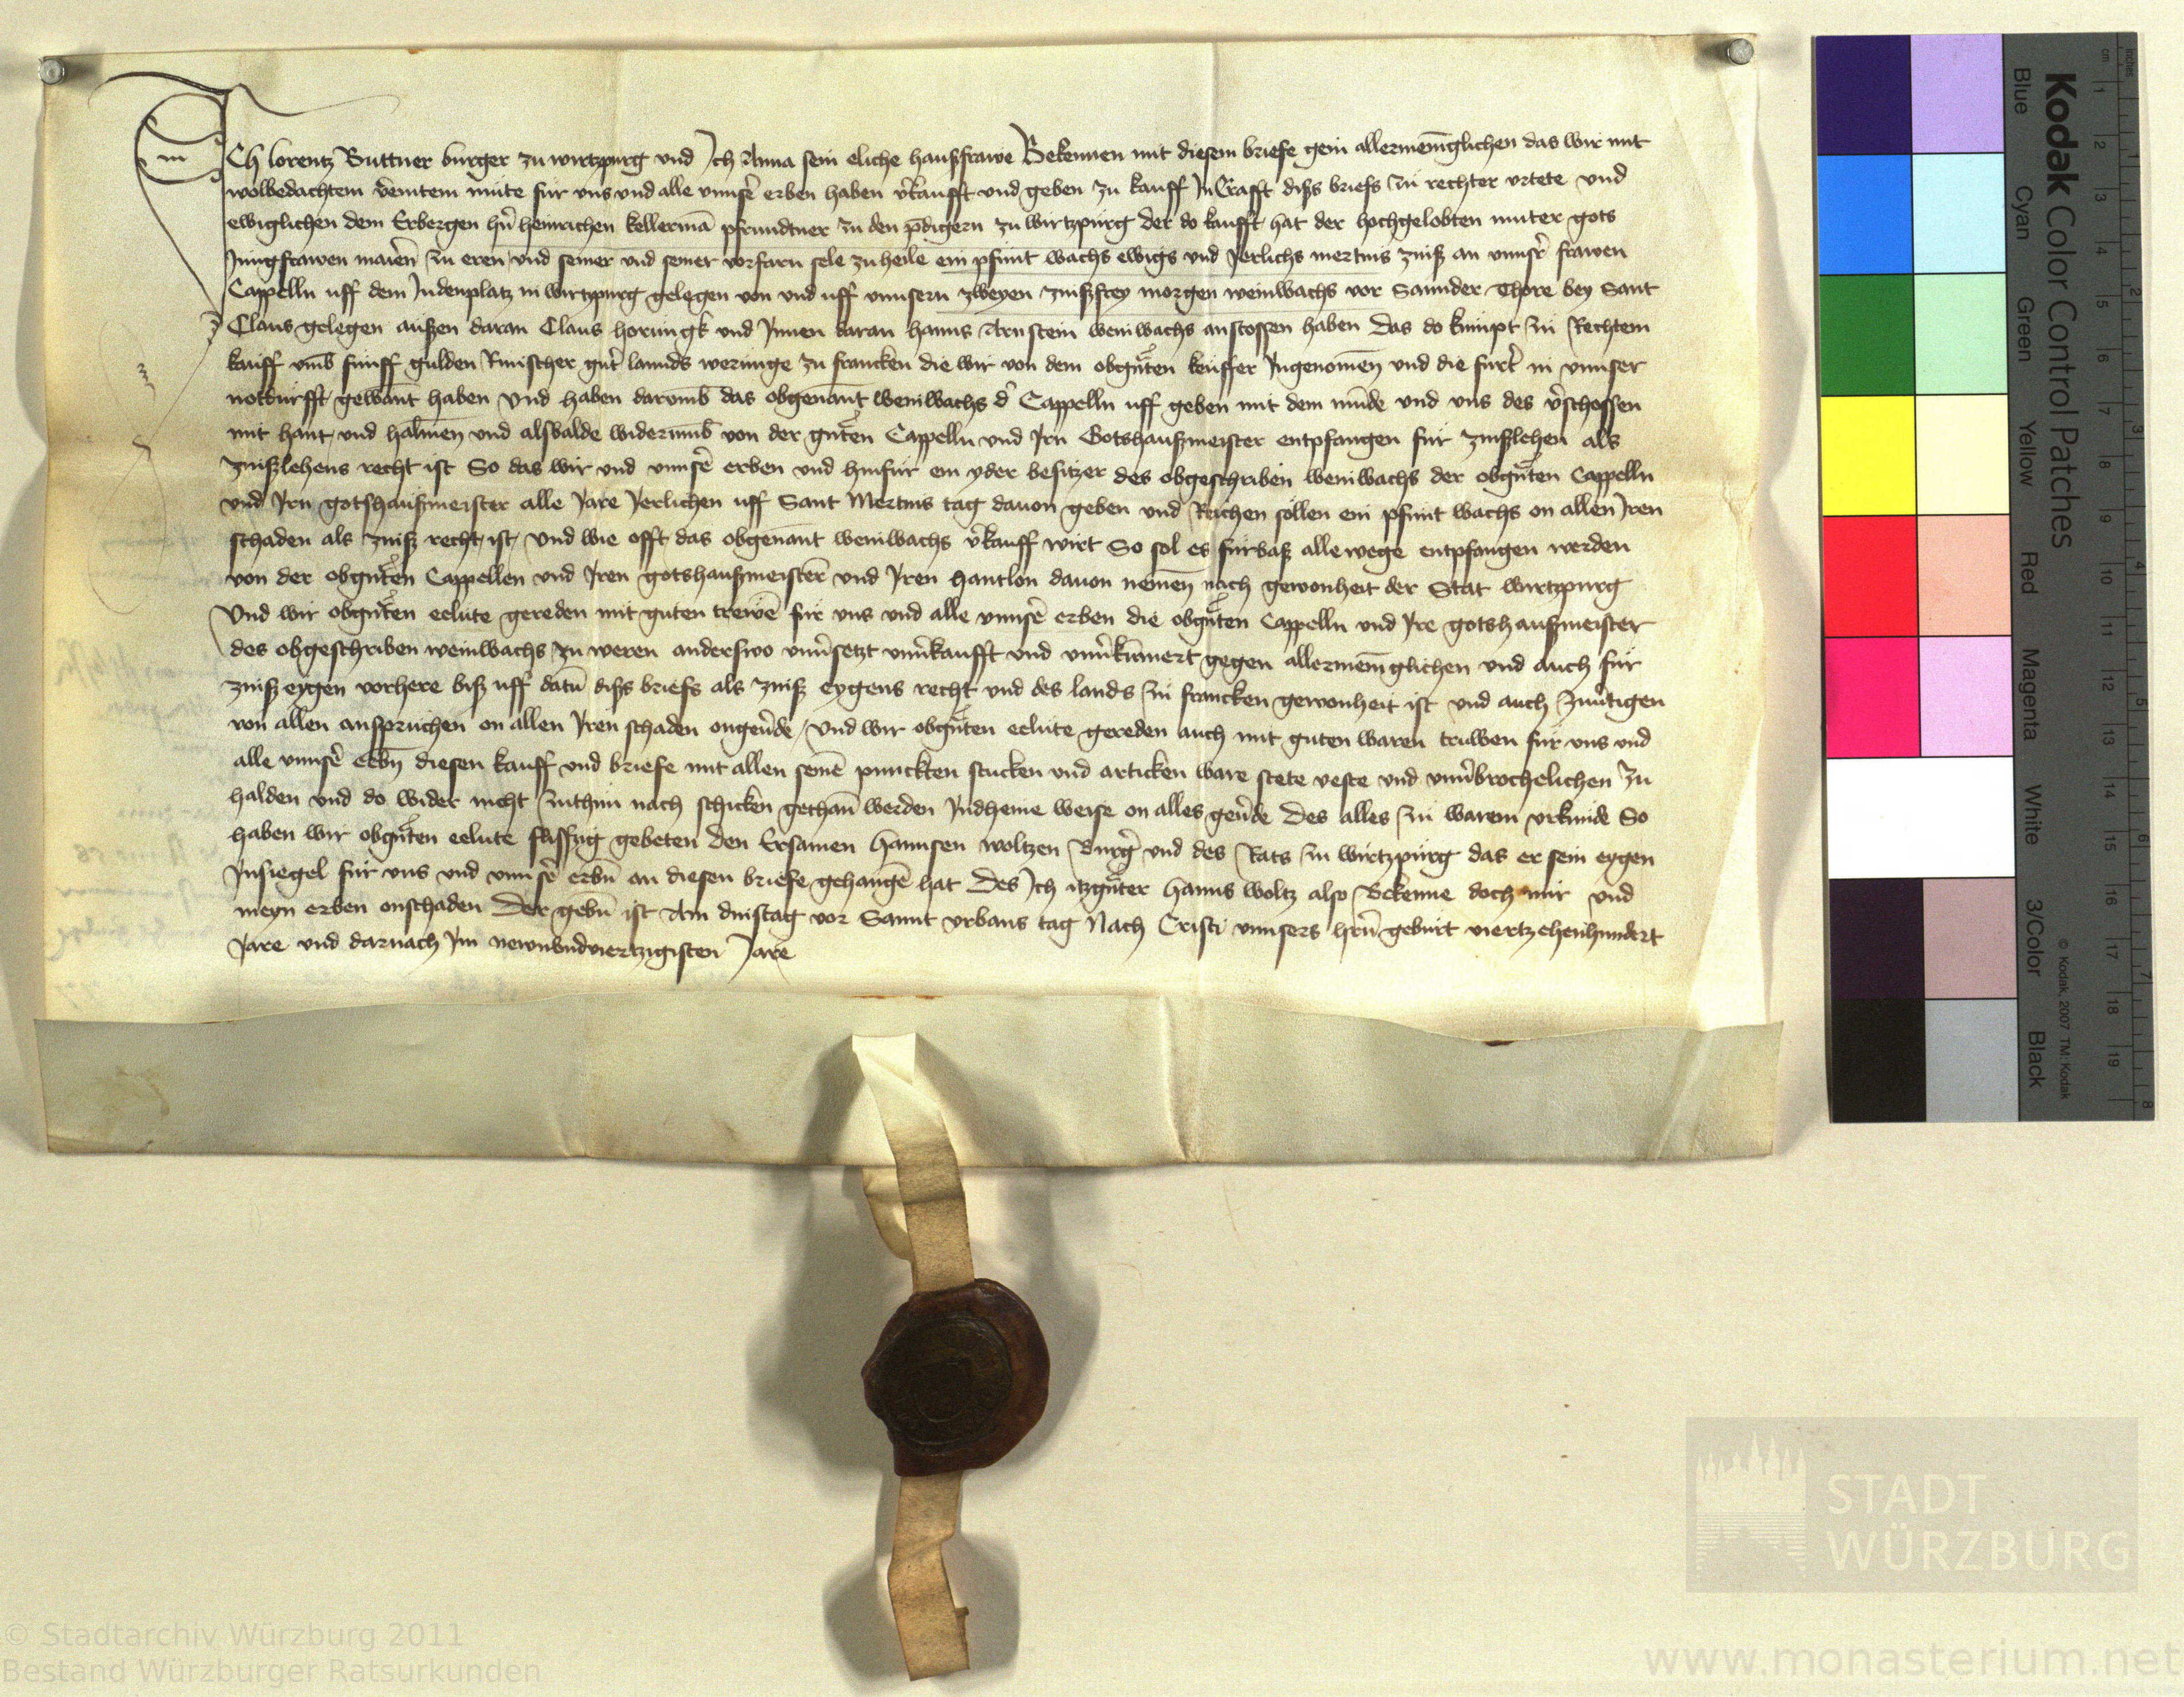 ICh lorentz Buttner burger zu wirtzpurg vnd Ich Anna sein eliche hausfrawe Bekennen mit diesem briefe gein allermeniglichen das wir mit
wolbedachtem vereintem mute fur vns vnd alle vnnser erben haben v̉kaufft vnd geben zu kauff In Crafft diß briefs zu rechter vrtete vnd
ewiglichen dem Erbergen hern heinrichen kellermā pfrundtner zu den p̄digern zu wirtzpurg der do kaufft hat der hochgelobten muter gots
Jungfrawen marien zu eren vnd seiner vnd seiner vorfarn sele zu heile ein pfunt wachs ewigs vnd Jerlichs mertins zinß an vnnsr̉ frawen
Cappelln uff dem Judenplatz in wirtzpurg gelegen von vnd uff vnnsern zweyen zinßfrey morgen weinwachs vor Sannder Thore bey Sant
Claus gelegen außen daran Claus hornungk vnd Jnnen daran hanns Arnstein weinwachs anstossen haben Das do kumpt zu Rechtem
kauff vmb funff gulden Rinischer gut̉ lannds werunge zu francken die wir von dem obgn̄ten keuffer Jngenomen vnd die furt̉ in vnnser
notdurfft gewant haben vnd haben daromb das obgenant weinwachs d̉ Cappelln uff geben mit dem munde vnd vns des v̉schossen
mit hant vnd halmen vnd alsbalde widerumb von der gn̄ten Cappelln vnd Jrn Gotshaußmeister entpfangen fur zinßlehen als
zinßlehens recht ist So das wir vnd vnnser̉ erben vnd hinfur ein yder besitzer des obgeschriben weinwachs der obgn̄ten Cappelln
vnd Jrn gotshaußmeister alle Jare Jerlichen uff Sant Mertins tag dauon geben vnd Reichen sollen ein pfunt wachs on allen Jren
schaden als zinß recht ist vnd wie offt das obgenant weinwachs v̉kauff wirt So sol es furbaß alle wege entpfangen werden
von der obgn̄ten Cappellen vnd Jren gotshaußmeister vnd Jren hantlon dauon nemen nach gewonheit der Stat wirtzpurg
Vnd wir obgn̄ten eelute gereden mit guten trewē fur vns vnd alle vnnser̉ erben die obgn̄ten Cappelln vnd Jre gotshaußmeister
des obgeschriben weinwachs zu weren anderswo vnủsetzt vnủkaufft vnd vnủkumert gegen allermeniglichen vnd auch fur
zinß eygen vorhere biß uff datū diß briefs als zinß eygens recht vnd des lands zu francken gewonheit ist vnd auch zuủtigen
von allen anspruchen on allen Jren schaden ongeủde Vnd wir obgn̄ten eelute gereden auch mit guten waren truwen fur vns vnd
alle vnnser̉ erbn̄ diesen kauff vnd briefe mit allen seinē punckten stucken vnd articken ware stete veste vnd vnủbrochelichen zu
halden vnd do wider nicht zuthun nach schicken gethan werden Jndheine weise on alles geủde Des alles zu warem vrkunde So
haben wir obgn̄ten eelute flissyg gebeten den Ersamen hannsen woltzen Burg̉ vnd des Rats zu wirtzpurg das er sein eygen
Jnsiegel fur vns vnd vnnser̉ erbn̄ an diesen briefe gehangē hat Des Ich itzgn̄ter hanns woltz also Bekenne doch mir vnd
meyn erben onschaden Der gebn̄ ist Am dinstag vor Sannt vrbans tag Nach Cristi vnnsers hrn̄ geburt viertzehenhundert
Jare vnd darnach Jm newnundviertzigisten Jare
Kodak Color Control Patches
Blue Cyan Green Yellow Red Magenta White 3/Color Black
© Kodak, 2007 TM: Kodak
cm 1 2 3 4 5 6 7 8 9 10 11 12 13 14 15 16 17 18 19
inches 1 2 3 4 5 6 7 8
STADT
WÜRZBURG
© Stadtarchiv Würzburg 2011
Bestand Würzburger Ratsurkunden
www.monasterium.net